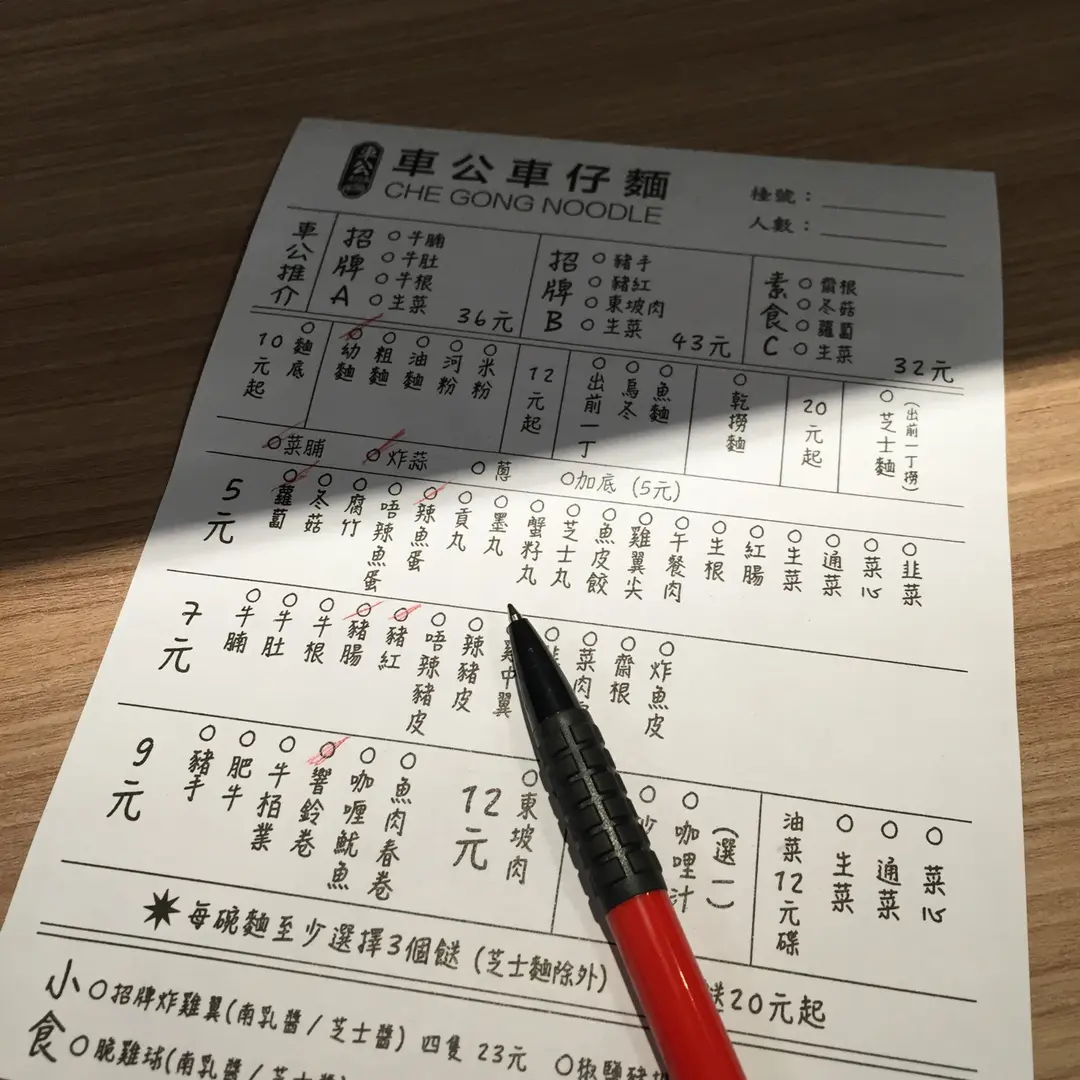 車公
車公車仔麵
CHE GONG NOODLE
檯號：
人數：
車公推介
招牌A
牛腩
牛肚
牛根
生菜
36元
招牌B
豬手
豬紅
東坡肉
生菜
43元
素食C
齋根
冬菇
蘿蔔
生菜
32元
10元起
麵底
幼麵
粗麵
油麵
河粉
米粉
12元起
出前一丁
烏冬
魚麵
乾撈麵
20元起
芝士麵
(出前一丁撈)
菜脯
炸蒜
蔥
加底 (5元)
5元
蘿蔔
冬菇
腐竹
唔辣魚蛋
辣魚蛋
貢丸
墨丸
蟹籽丸
芝士丸
魚皮餃
雞翼尖
午餐肉
生根
紅腸
生菜
通菜
菜心
韭菜
7元
牛腩
牛肚
牛根
豬腸
豬紅
唔辣豬皮
辣豬皮
雞中翼
菜肉
齋根
炸魚皮
9元
豬手
肥牛
牛栢葉
響鈴卷
咖喱魷魚
魚肉春卷
12元
東坡肉
咖哩汁
(選一)
油菜12元碟
生菜
通菜
菜心
每碗麵至少選擇3個餸 (芝士麵除外)
餸20元起
小食
招牌炸雞翼(南乳醬/芝士醬) 四隻 23元
椒鹽豬
脆雞球(南乳醬/芝士醬)